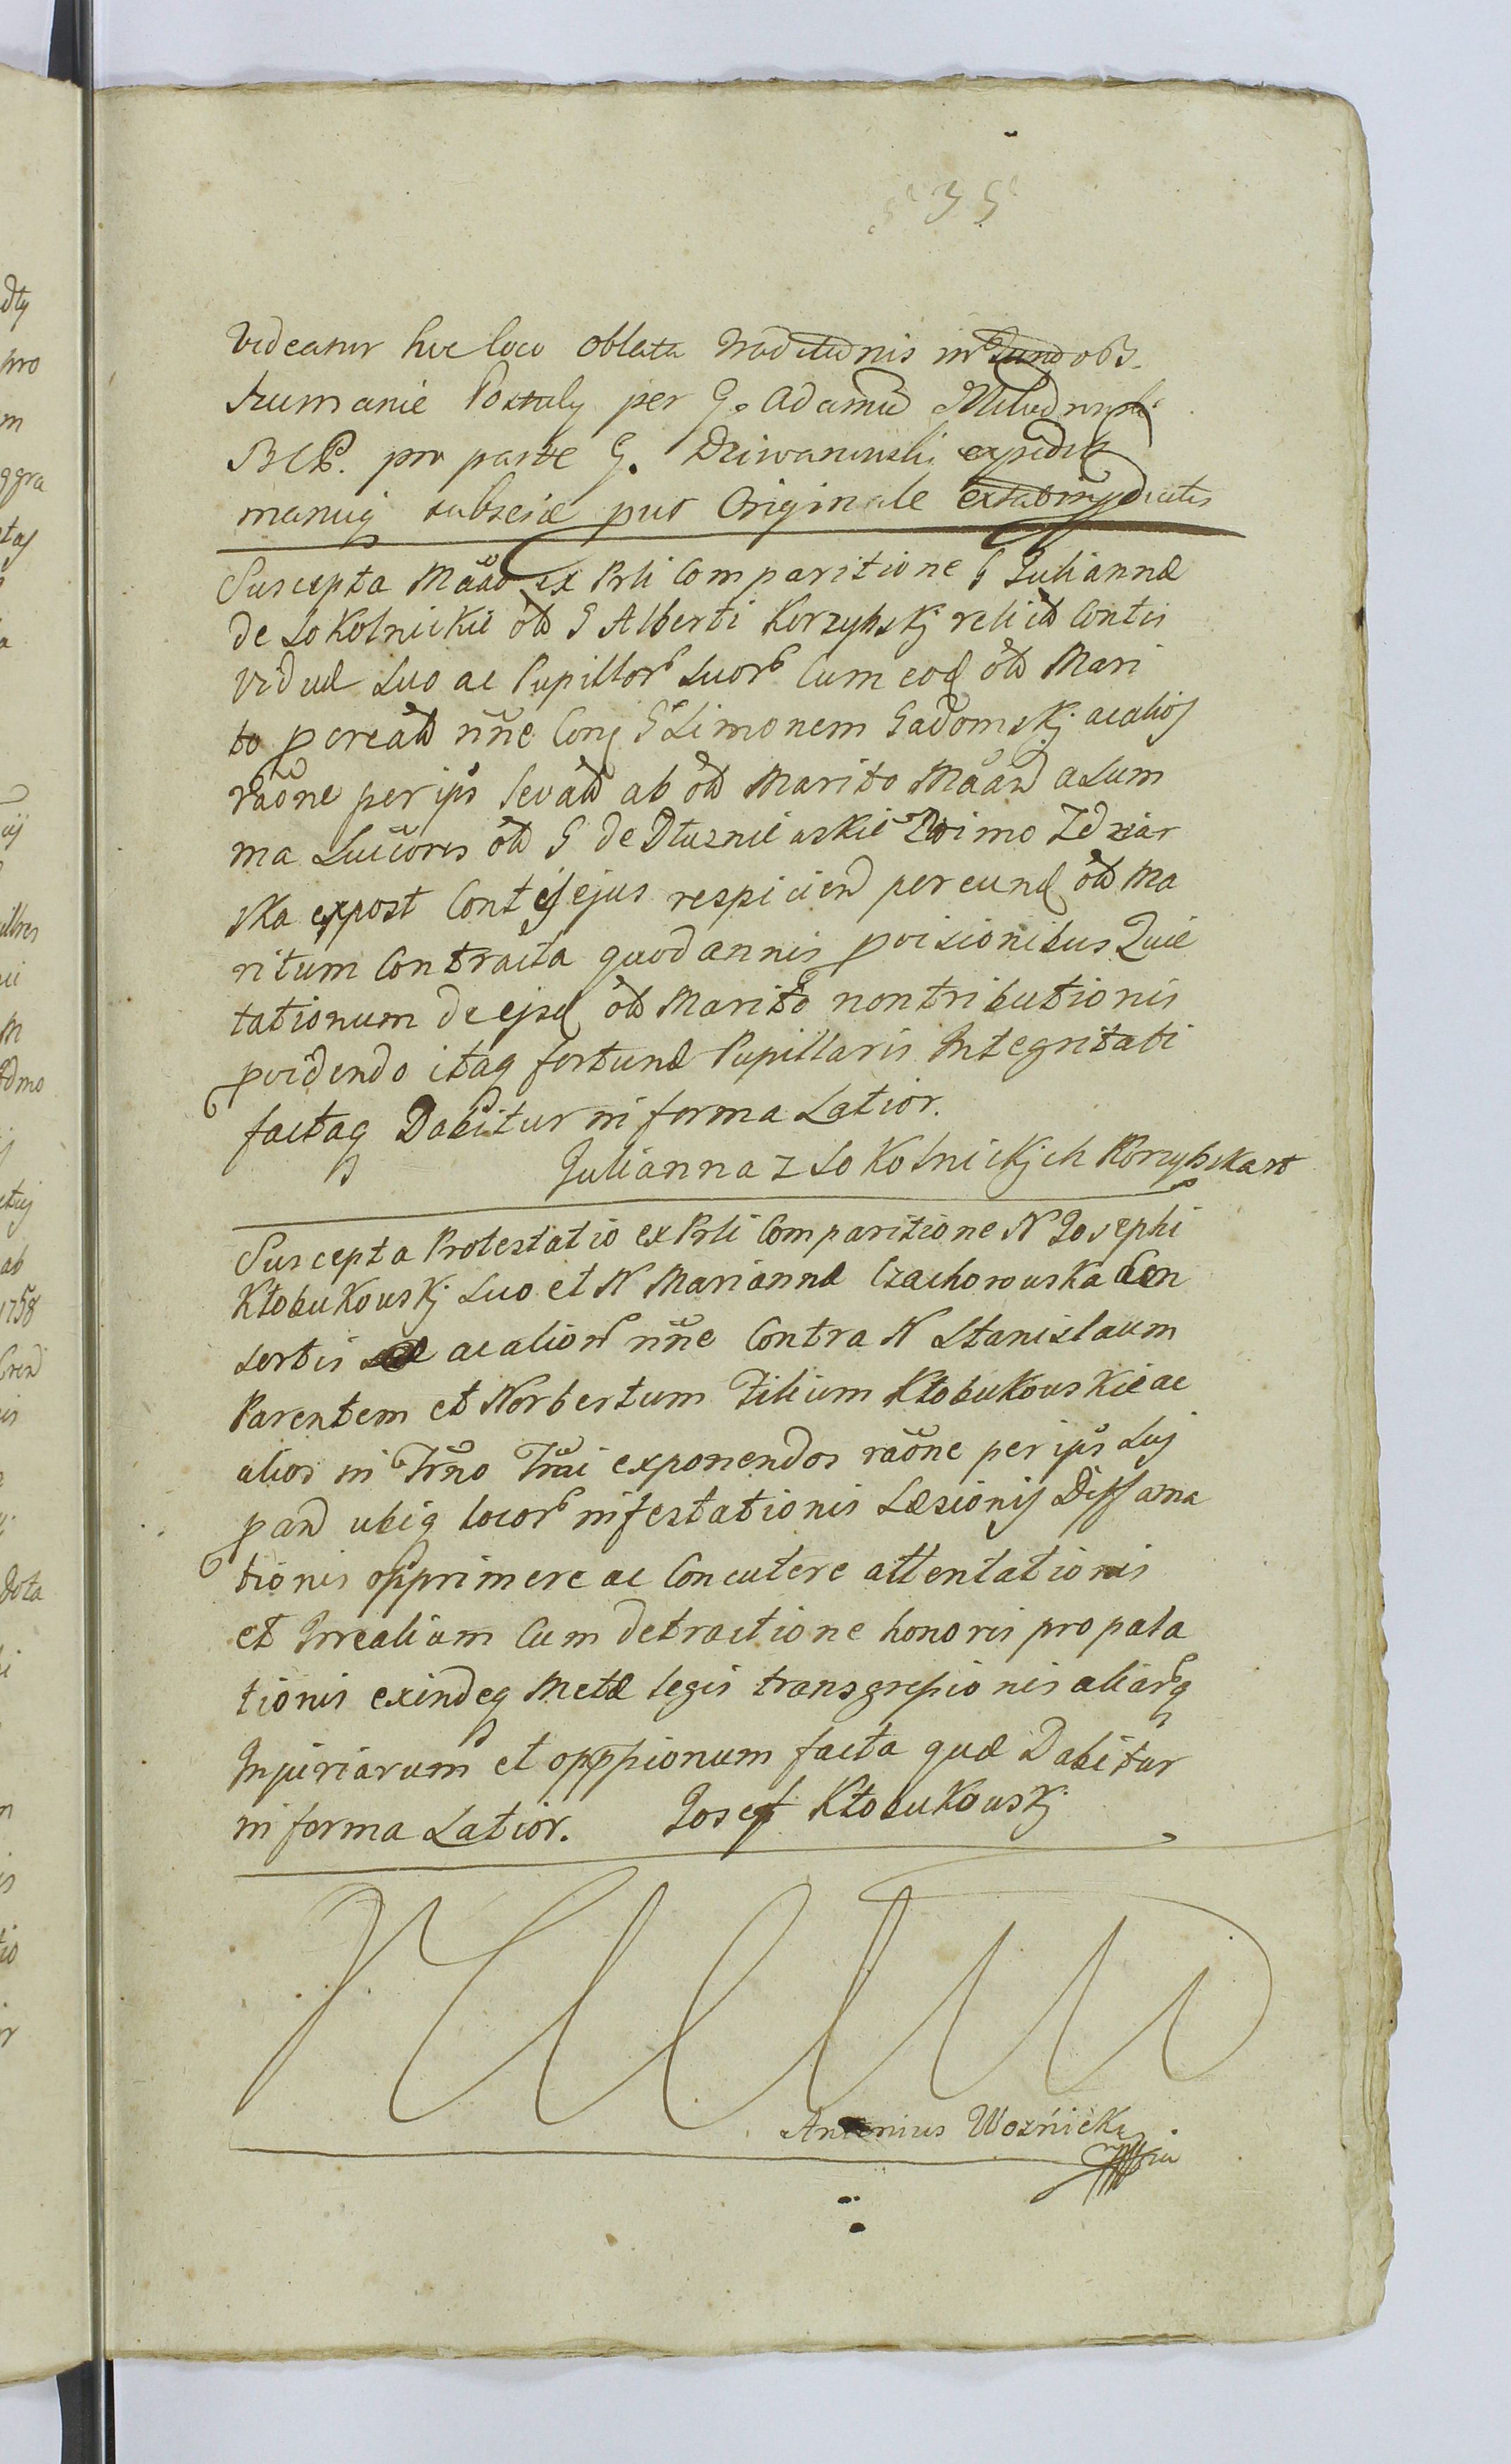 535
Videatur hic loco oblata Traditionis in fund obs.
Szumanie Postuly per G. Adamu
B C P. pro parte G. Dziwanowski expedit
manuq subscrie pur Originale
Suscepta Mããõ ex Prli Comparitione G Juliannæ
de Sokolnickie ōld G Alberti Korzybskj relictæ Contis
viduæ Suo ac Pupillorb Suorb Cum eod ōld Mari
to pcreatd nñe Conq G Simonem Gadomskj ac alios
rãõne per ips levatd ab ōld Marito Mããnd a Sum
ma Succoris ōld G de Dłuznieuskie Zdziar
ska expost Contis ejus respiciend per eund ōld Ma
ritum Contracta quod annis pvisionibus Quie
tationum de ejsd ōld Marito non tributionis
pvidendo itaq fortunæ Pupillaris Integritati
factaq Dabitur in forma Latior.
Julianna z Sokolnickjch Korzybska
Suscepta Protestatio ex Prli Comparitione N Josephi
Kłobukouskj Suo et N Mariannæ Czachorouska Con
sortis suæ ac aliorb nñe Contra N Stanislaum
Parentem et Norbertum Filium Kłobukouskie ac
alios in Trño Trãi exponendos rãõne per ips Suj
pand ubiq locorb infestationis Læsionis Diffama
tionis opprimere ac Concutere attentationis
et Irrealium Cum detractione honoris propala
tionis exindeq Metæ legis transgressionis aliarbq
Injuriarum et opppssionum facta quæ Dabitur
in forma Latior. Josef Kłobukouskj
Antonius Woźnicka